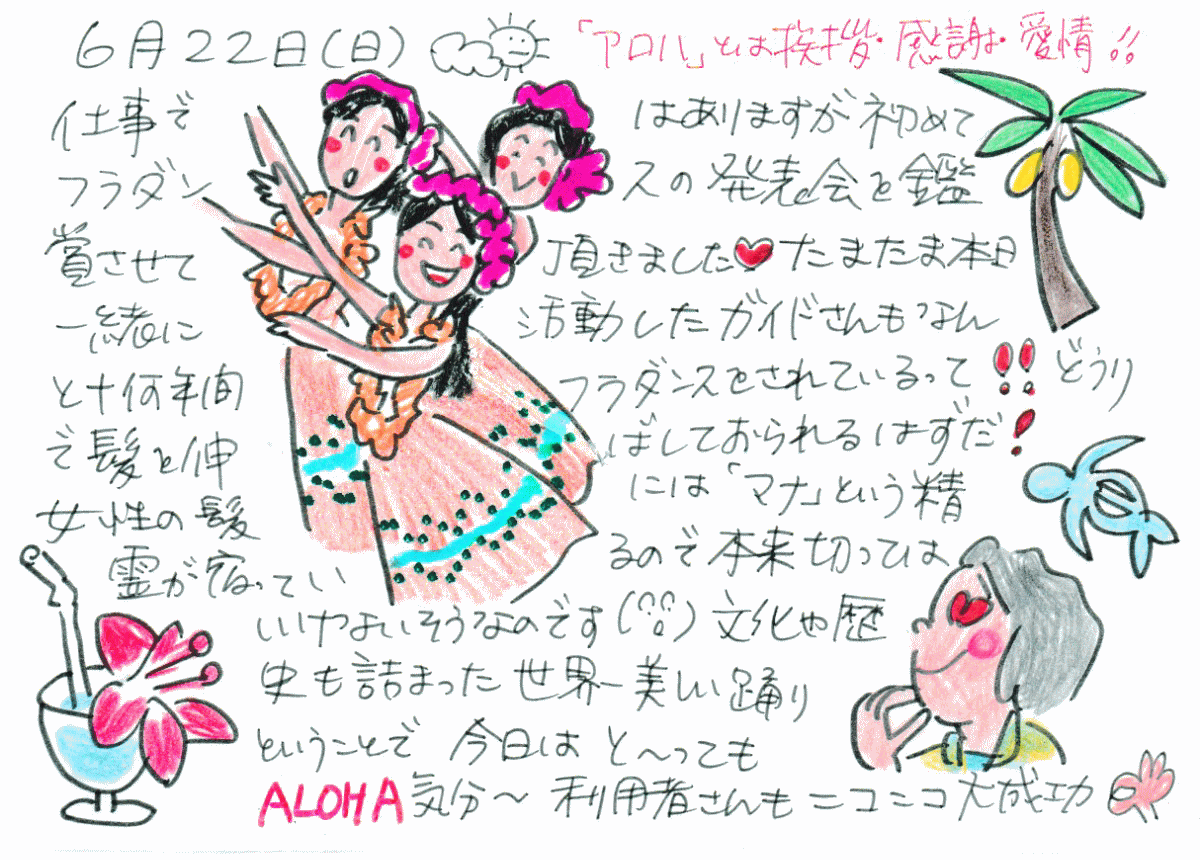 6月22日(日)
「アロハ」とは挨拶・感謝・愛情!!
仕事ではありますが初めて
フラダンスの発表会を鑑
賞させて頂きました♥たまたま本日
一緒に活動したガイドさんもなん
と十何年間フラダンスをされているって!!どうり
で髪を伸ばしておられるはずだ!
女性の髪には「マナ」という精
霊が宿っているので本来切っては
いけないそうなのです(°°)文化や歴
史も詰まった世界一美しい踊り
ということで 今日はと〜っても
ALOHA気分〜 利用者さんもニコニコ大成功